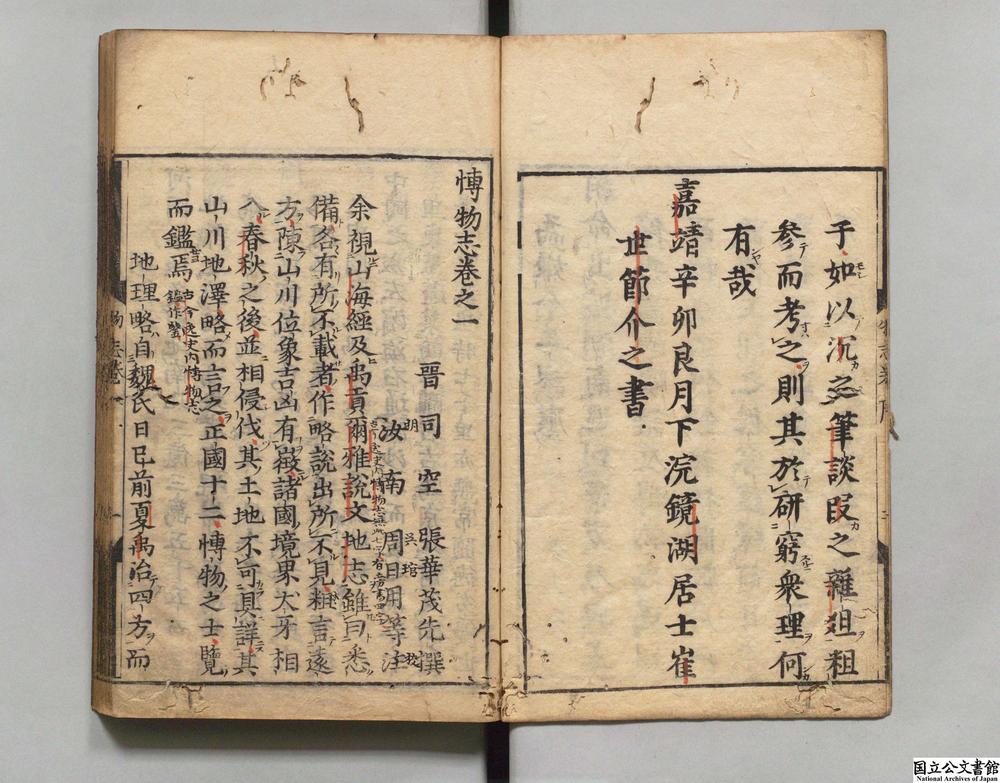 于如以沉之筆談段之雜俎粗
参而考之則其於研窮衆理何
有哉
嘉靖辛卯良月下浣鏡湖居士崔
世節介之書
愽物志卷之一
晉司空張華茂先撰
汝南周日用等注
余視山海經及禹貢爾雅說文地志雖曰悉
備各有所不載者作略說出所不見粗言遠
方陳山川位象吉凶有徵諸國境界犬牙相
入春秋之後並相侵伐其土地不可具詳其
山川地澤略而言之正國十二愽物之士覽
而鑑焉
古今逸史内愽物志
鑑作鑒
地理略自魏氏日已前夏禹治四方而
国立公文書館
National Archives of Japan